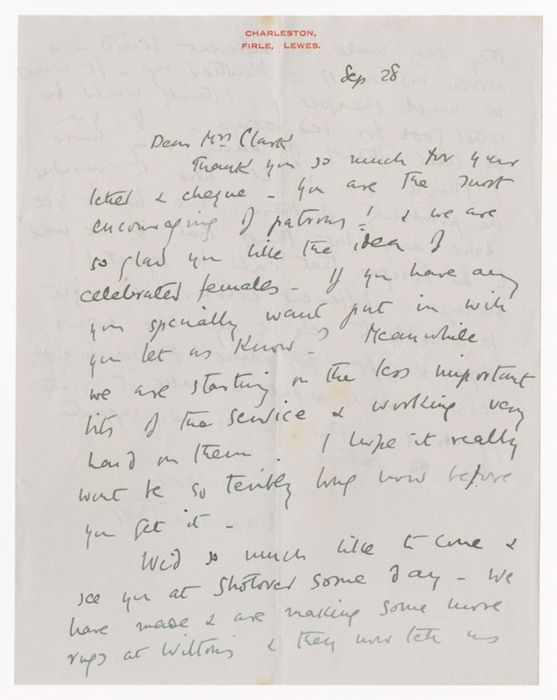 CHARLESTON,
FIRLE, LEWES.
Sep 28
Dear Mrs Clark
Thank you so much for your
letter & cheque - you are the most
encouraging of patrons! & we are
so glad you like the idea of
celebrated females - If you have any
you specially want put in will
you let us know? Meanwhile
we are starting on the less important
bits of the service & working very
hard on them. I hope it really
wont be so terribly long now before
you get it -
We'd so much like to come &
see you at Shotover some day - We
have made & are making some more
rugs at Wiltons & they now let us